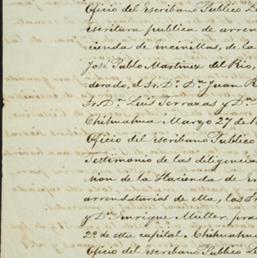 Oficio del escribano Publico
escritura publica de arren
cienda de encinillas, de la
José Pablo Martinez del Rio,
derado, el Sr. Dn. Dn. Juan
Sr. Dn. Luis Terrazas y Dn.
Chihuahua Marzo 27 de
Oficio del escribano Publico
Testimonio de las diligencia
sion de la Hacienda de en
arrendatarios de ella, los
y Dn. Enrique Müller, pro
2º de esta capital, Chihuahua
Oficio del escribano Publico